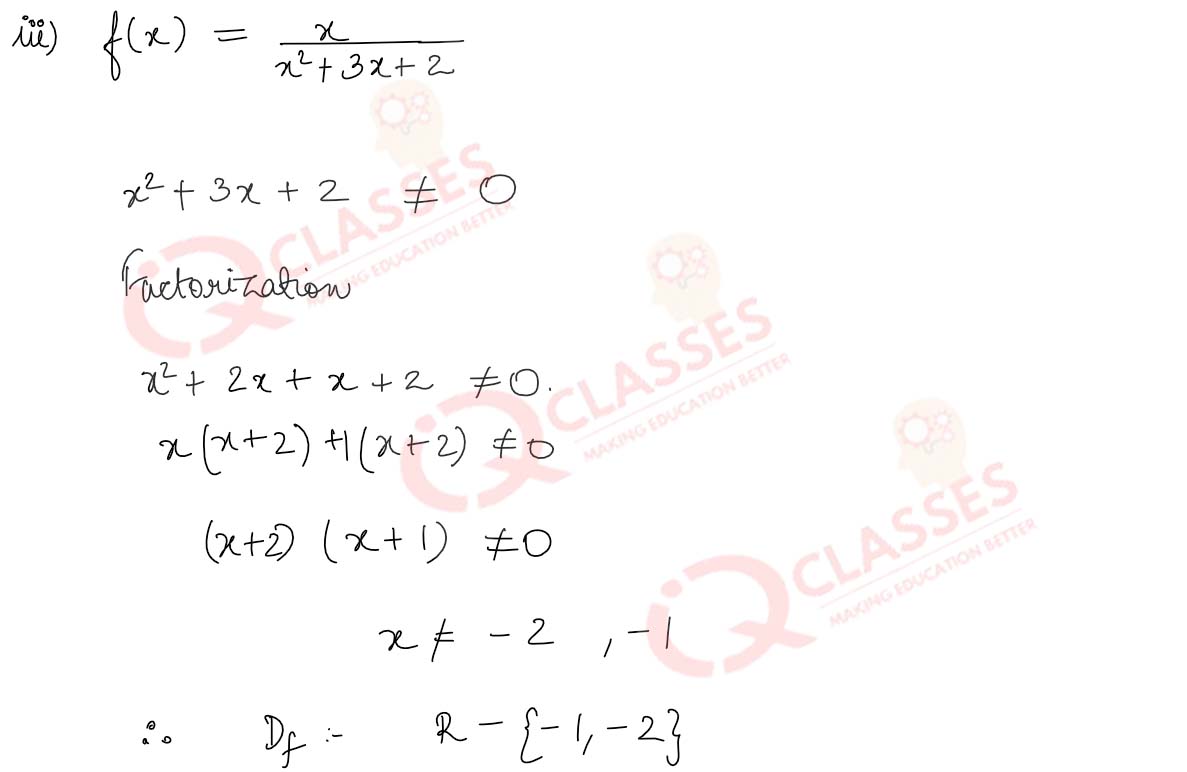 iii) f(x) = x / x² + 3x + 2
x² + 3x + 2 ≠ 0
Factorization
x² + 2x + x + 2 ≠ 0.
x (x+2) +1 (x+2) ≠ 0
(x+2) (x+1) ≠ 0
x ≠ -2 , -1
∴ Df :- R - {-1, -2}
IQ CLASSES
MAKING EDUCATION BETTER
IQ CLASSES
MAKING EDUCATION BETTER
IQ CLASSES
MAKING EDUCATION BETTER